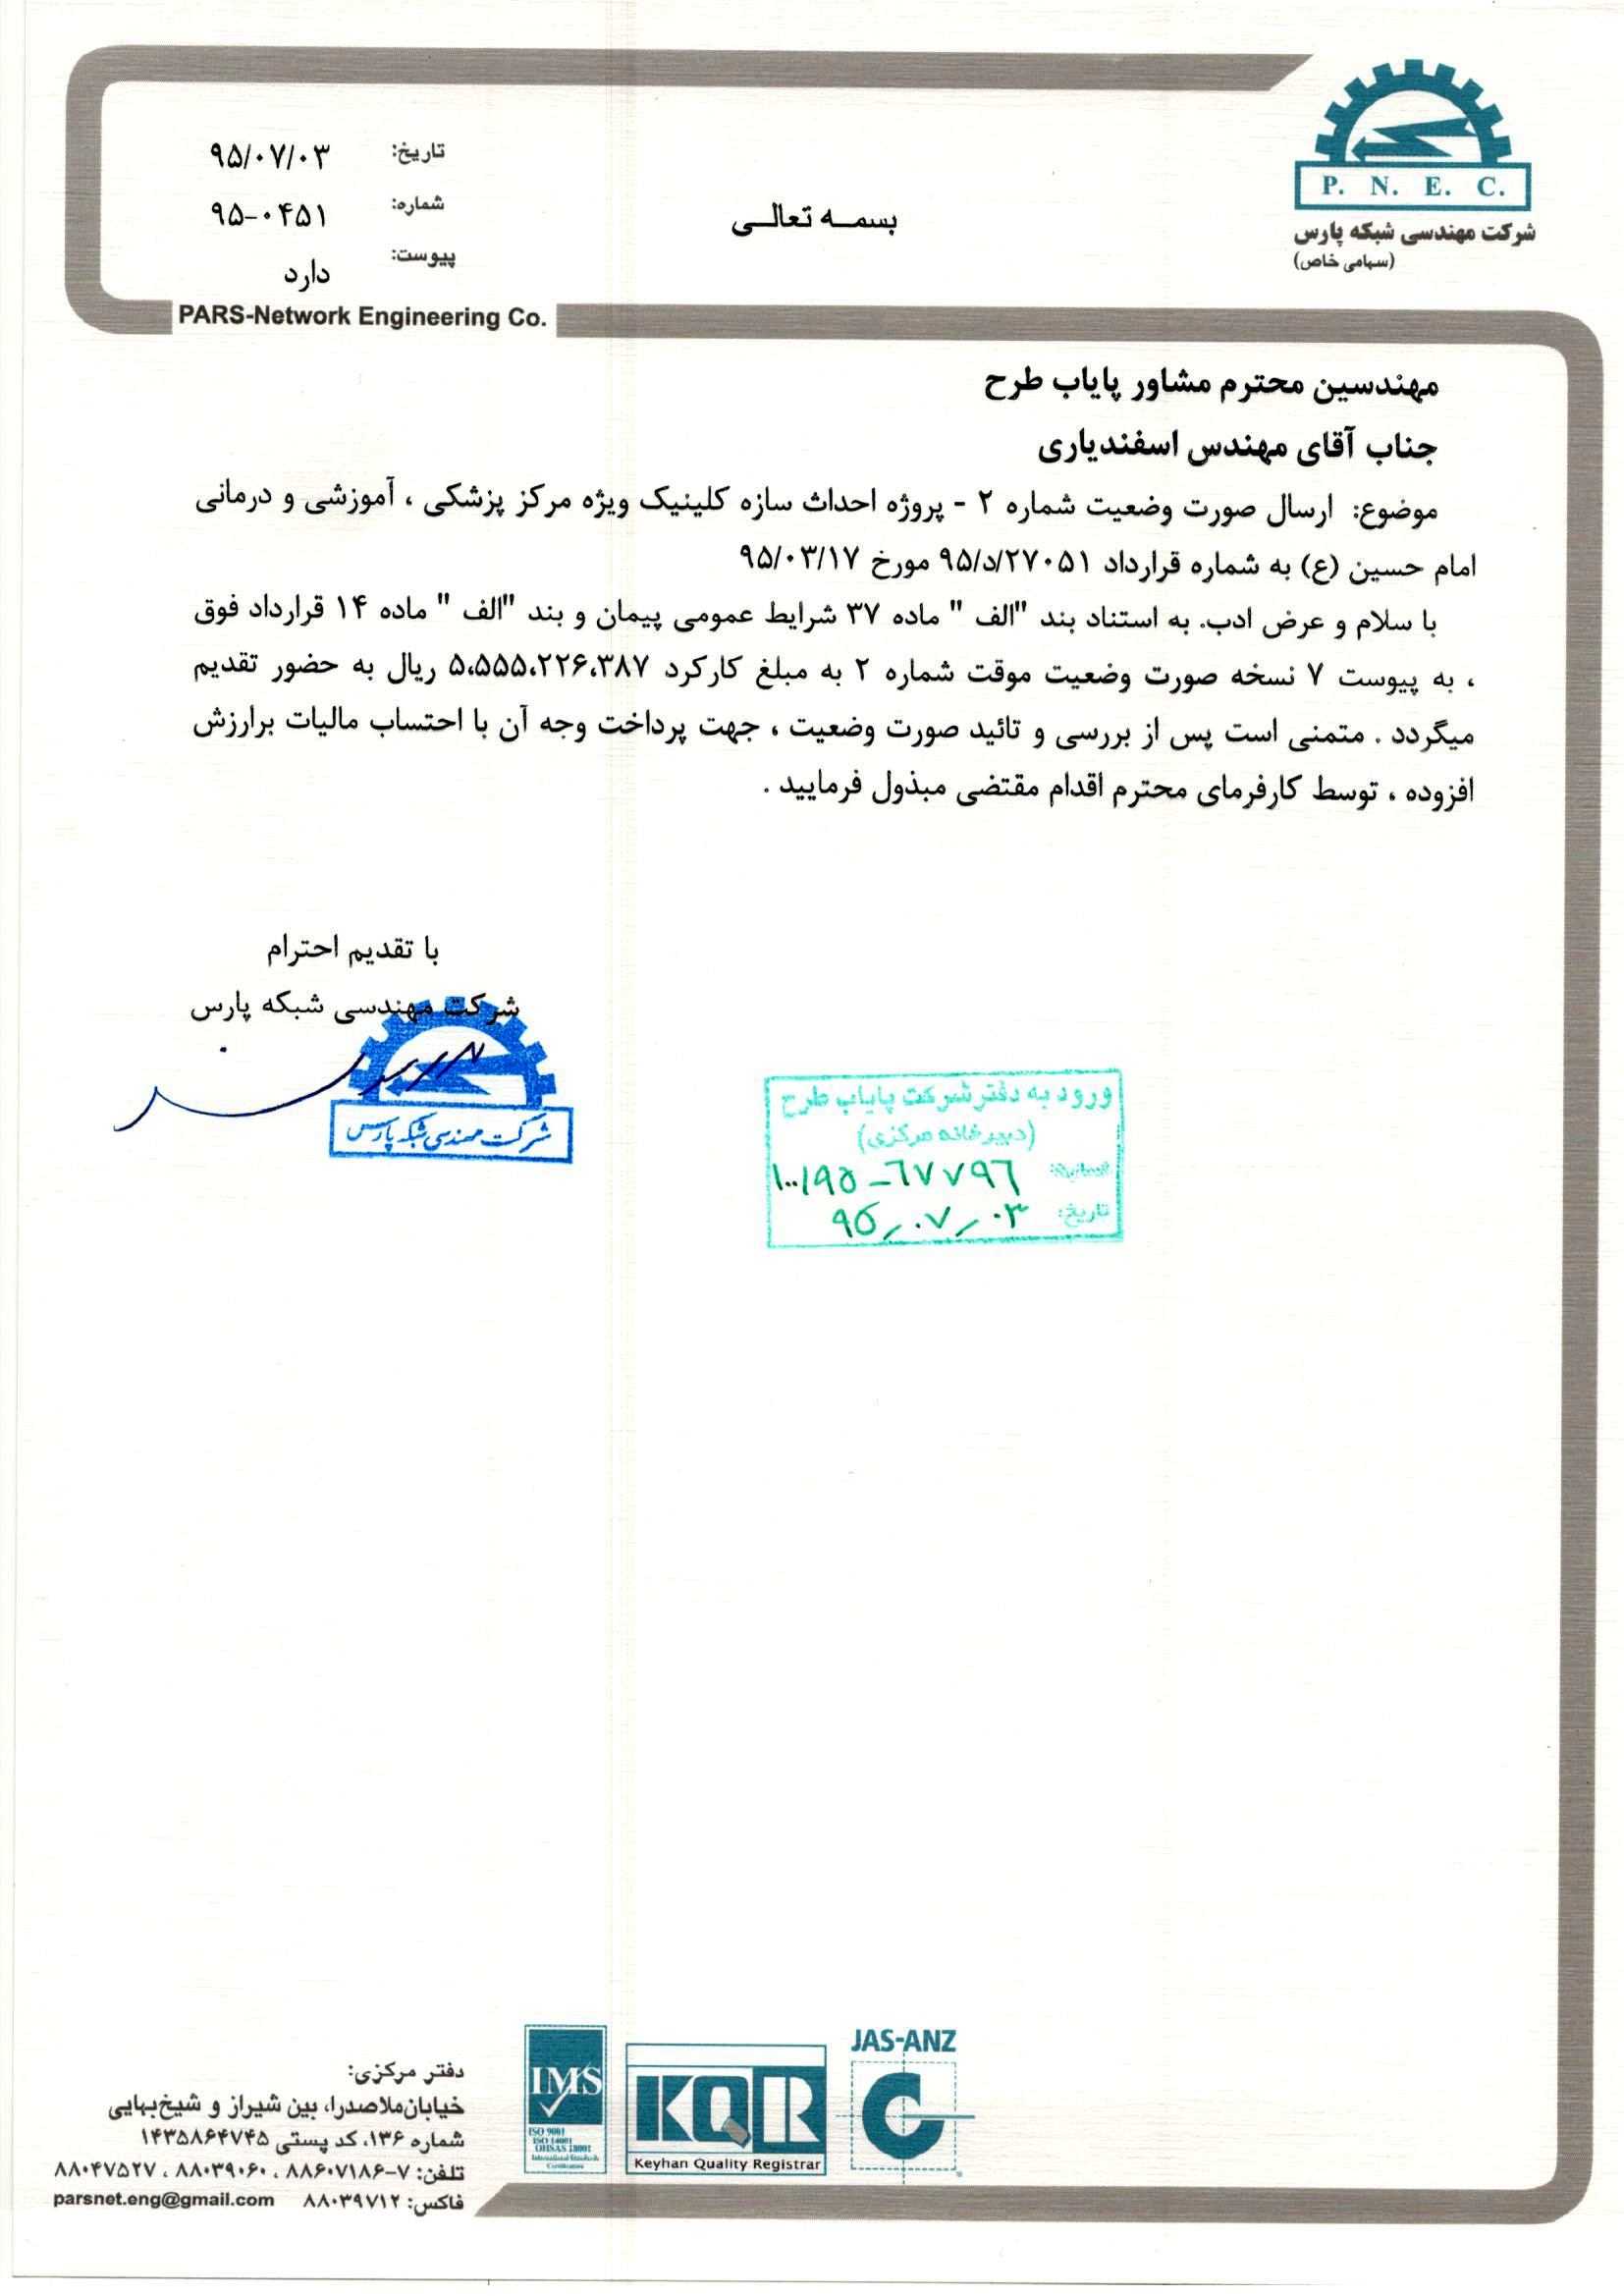 P. N. E. C.
شرکت مهندسی شبکه پارس
(سهامی خاص)
بسمه تعالی
تاریخ: ۹۵/۰۷/۰۳
شماره: ۹۵-۰۴۵۱
پیوست: دارد
PARS-Network Engineering Co.
مهندسین محترم مشاور پایاب طرح
جناب آقای مهندس اسفندیاری
موضوع: ارسال صورت وضعیت شماره ۲ - پروژه احداث سازه کلینیک ویژه مرکز پزشکی ، آموزشی و درمانی
امام حسین (ع) به شماره قرارداد ۹۵/د/۲۷۰۵۱ مورخ ۹۵/۰۳/۱۷
با سلام و عرض ادب. به استناد بند "الف " ماده ۳۷ شرایط عمومی پیمان و بند "الف " ماده ۱۴ قرارداد فوق
، به پیوست ۷ نسخه صورت وضعیت موقت شماره ۲ به مبلغ کارکرد ۵،۵۵۵،۲۲۶،۳۸۷ ریال به حضور تقدیم
میگردد . متمنی است پس از بررسی و تائید صورت وضعیت ، جهت پرداخت وجه آن با احتساب مالیات برارزش
افزوده ، توسط کارفرمای محترم اقدام مقتضی مبذول فرمایید .
با تقدیم احترام
شرکت مهندسی شبکه پارس
شرکت مهندسی شبکه پارس
ورود به دفتر شرکت پایاب طرح
(دبیرخانه مرکزی)
شماره: ۱۰۰/۹۵-۶۷۷۹۶
تاریخ: ۹۵/۰۷/۰۳
JAS-ANZ
KQR
Keyhan Quality Registrar
IMS
ISO 9001
ISO 14001
OHSAS 18001
International Standards
Certification
دفتر مرکزی:
خیابان ملاصدرا، بین شیراز و شیخ‌بهایی
شماره ۱۳۶، کد پستی ۱۴۳۵۸۶۴۷۴۵
تلفن: ۷-۸۸۶۰۷۱۸۶ ، ۸۸۰۳۹۰۶۰ ، ۸۸۰۴۷۵۲۷
فاکس: ۸۸۰۳۹۷۱۲ parsnet.eng@gmail.com